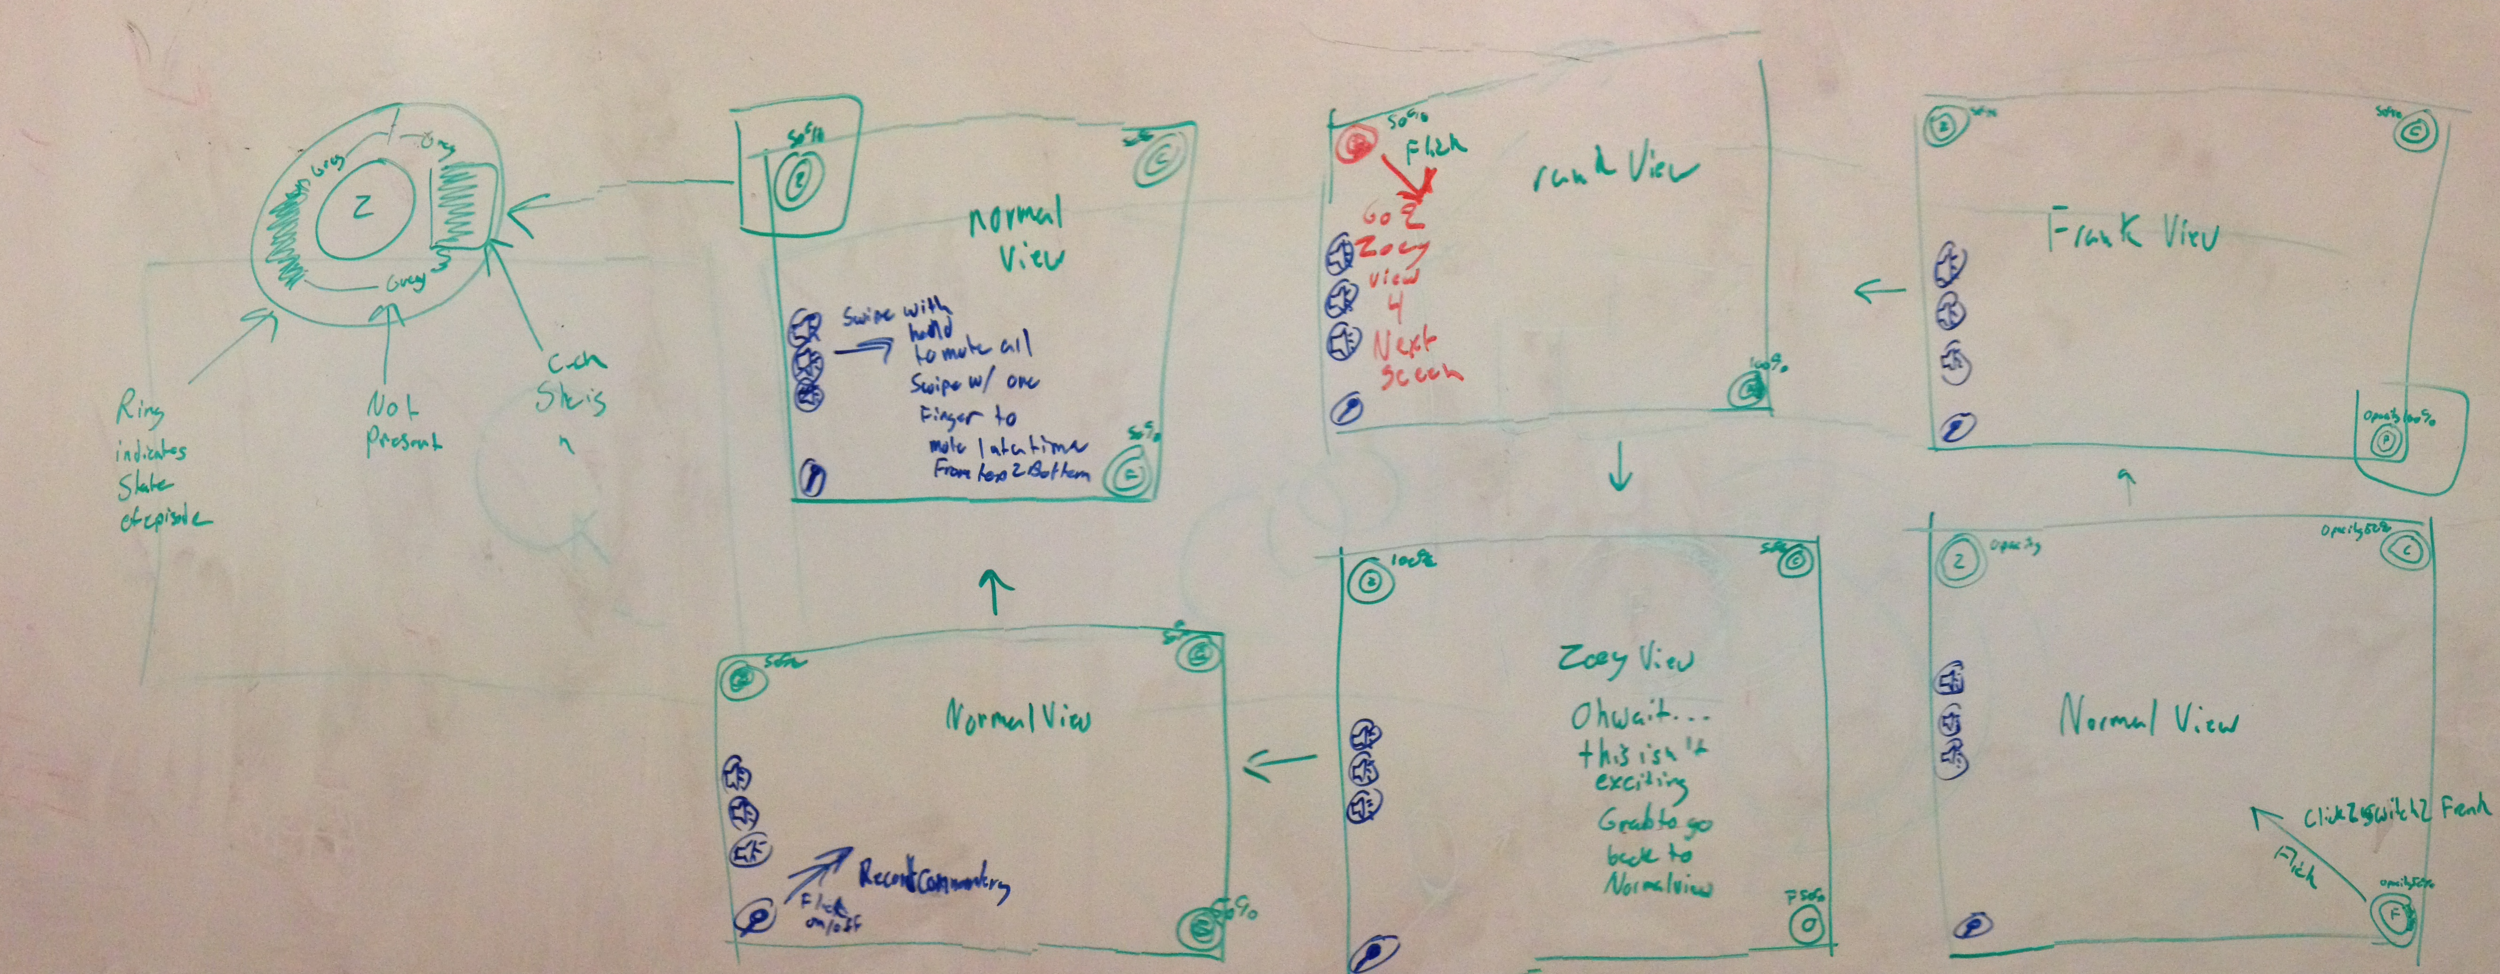 Grey
Grey
Z
Grey
Ring
indicates
State
of episode
Not
Present
50%
Z
C
Normal
View
Swipe with
hand
to mute all
Swipe w/ one
Finger to
mute 1 at a time
From top 2 Bottom
50%
50%
Flick
Go 2
Zoey
View
4
Next
screen
rank View
100%
Z
50%
50%
C
Frank View
Opacity 100%
F
50%
Normal View
Record Commentary
Flick
on/off
50%
Z
100%
C
Zoey View
Oh wait...
this isn't
exciting
Grab to go
back to
Normal view
F 50%
Z
Opacity
Opacity 50%
C
Normal View
Click 2 switch 2 Frank
Flick
Opacity 50%
F